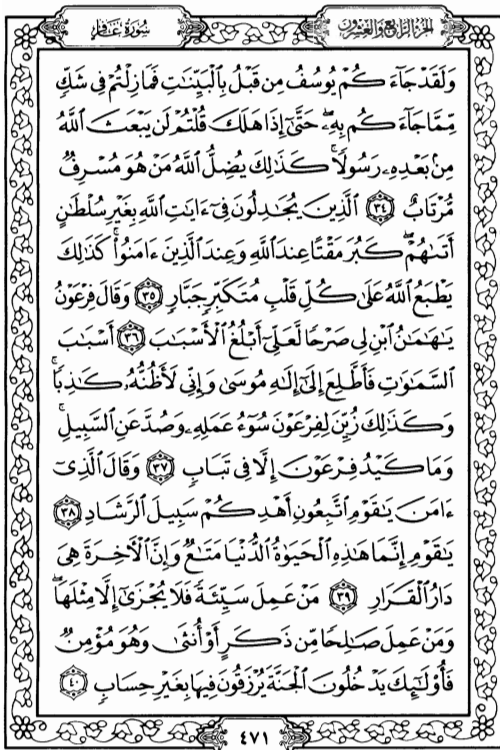 الجزء الرابع والعشرون
سورة غافر
وَلَقَدْ جَآءَكُمْ يُوسُفُ مِن قَبْلُ بِٱلْبَيِّنَٰتِ فَمَا زِلْتُمْ فِى شَكٍّ
مِّمَّا جَآءَكُم بِهِۦ ۖ حَتَّىٰٓ إِذَا هَلَكَ قُلْتُمْ لَن يَبْعَثَ ٱللَّهُ
مِنۢ بَعْدِهِۦ رَسُولًا ۚ كَذَٰلِكَ يُضِلُّ ٱللَّهُ مَنْ هُوَ مُسْرِفٌ
مُّرْتَابٌ ٣٤ ٱلَّذِينَ يُجَٰدِلُونَ فِىٓ ءَايَٰتِ ٱللَّهِ بِغَيْرِ سُلْطَٰنٍ
أَتَىٰهُمْ ۖ كَبُرَ مَقْتًا عِندَ ٱللَّهِ وَعِندَ ٱلَّذِينَ ءَامَنُوا۟ ۚ كَذَٰلِكَ
يَطْبَعُ ٱللَّهُ عَلَىٰ كُلِّ قَلْبِ مُتَكَبِّرٍ جَبَّارٍ ٣٥ وَقَالَ فِرْعَوْنُ
يَٰهَٰمَٰنُ ٱبْنِ لِى صَرْحًا لَّعَلِّىٓ أَبْلُغُ ٱلْأَسْبَٰبَ ٣٦ أَسْبَٰبَ
ٱلسَّمَٰوَٰتِ فَأَطَّلِعَ إِلَىٰٓ إِلَٰهِ مُوسَىٰ وَإِنِّى لَأَظُنُّهُۥ كَٰذِبًا ۚ
وَكَذَٰلِكَ زُيِّنَ لِفِرْعَوْنَ سُوٓءُ عَمَلِهِۦ وَصُدَّ عَنِ ٱلسَّبِيلِ ۚ
وَمَا كَيْدُ فِرْعَوْنَ إِلَّا فِى تَبَابٍ ٣٧ وَقَالَ ٱلَّذِىٓ
ءَامَنَ يَٰقَوْمِ ٱتَّبِعُونِ أَهْدِكُمْ سَبِيلَ ٱلرَّشَادِ ٣٨
يَٰقَوْمِ إِنَّمَا هَٰذِهِ ٱلْحَيَوٰةُ ٱلدُّنْيَا مَتَٰعٌ وَإِنَّ ٱلْءَاخِرَةَ هِىَ
دَارُ ٱلْقَرَارِ ٣٩ مَنْ عَمِلَ سَيِّئَةً فَلَا يُجْزَىٰٓ إِلَّا مِثْلَهَا ۖ
وَمَنْ عَمِلَ صَٰلِحًا مِّن ذَكَرٍ أَوْ أُنثَىٰ وَهُوَ مُؤْمِنٌ
فَأُو۟لَٰٓئِكَ يَدْخُلُونَ ٱلْجَنَّةَ يُرْزَقُونَ فِيهَا بِغَيْرِ حِسَابٍ ٤٠
٤٧١